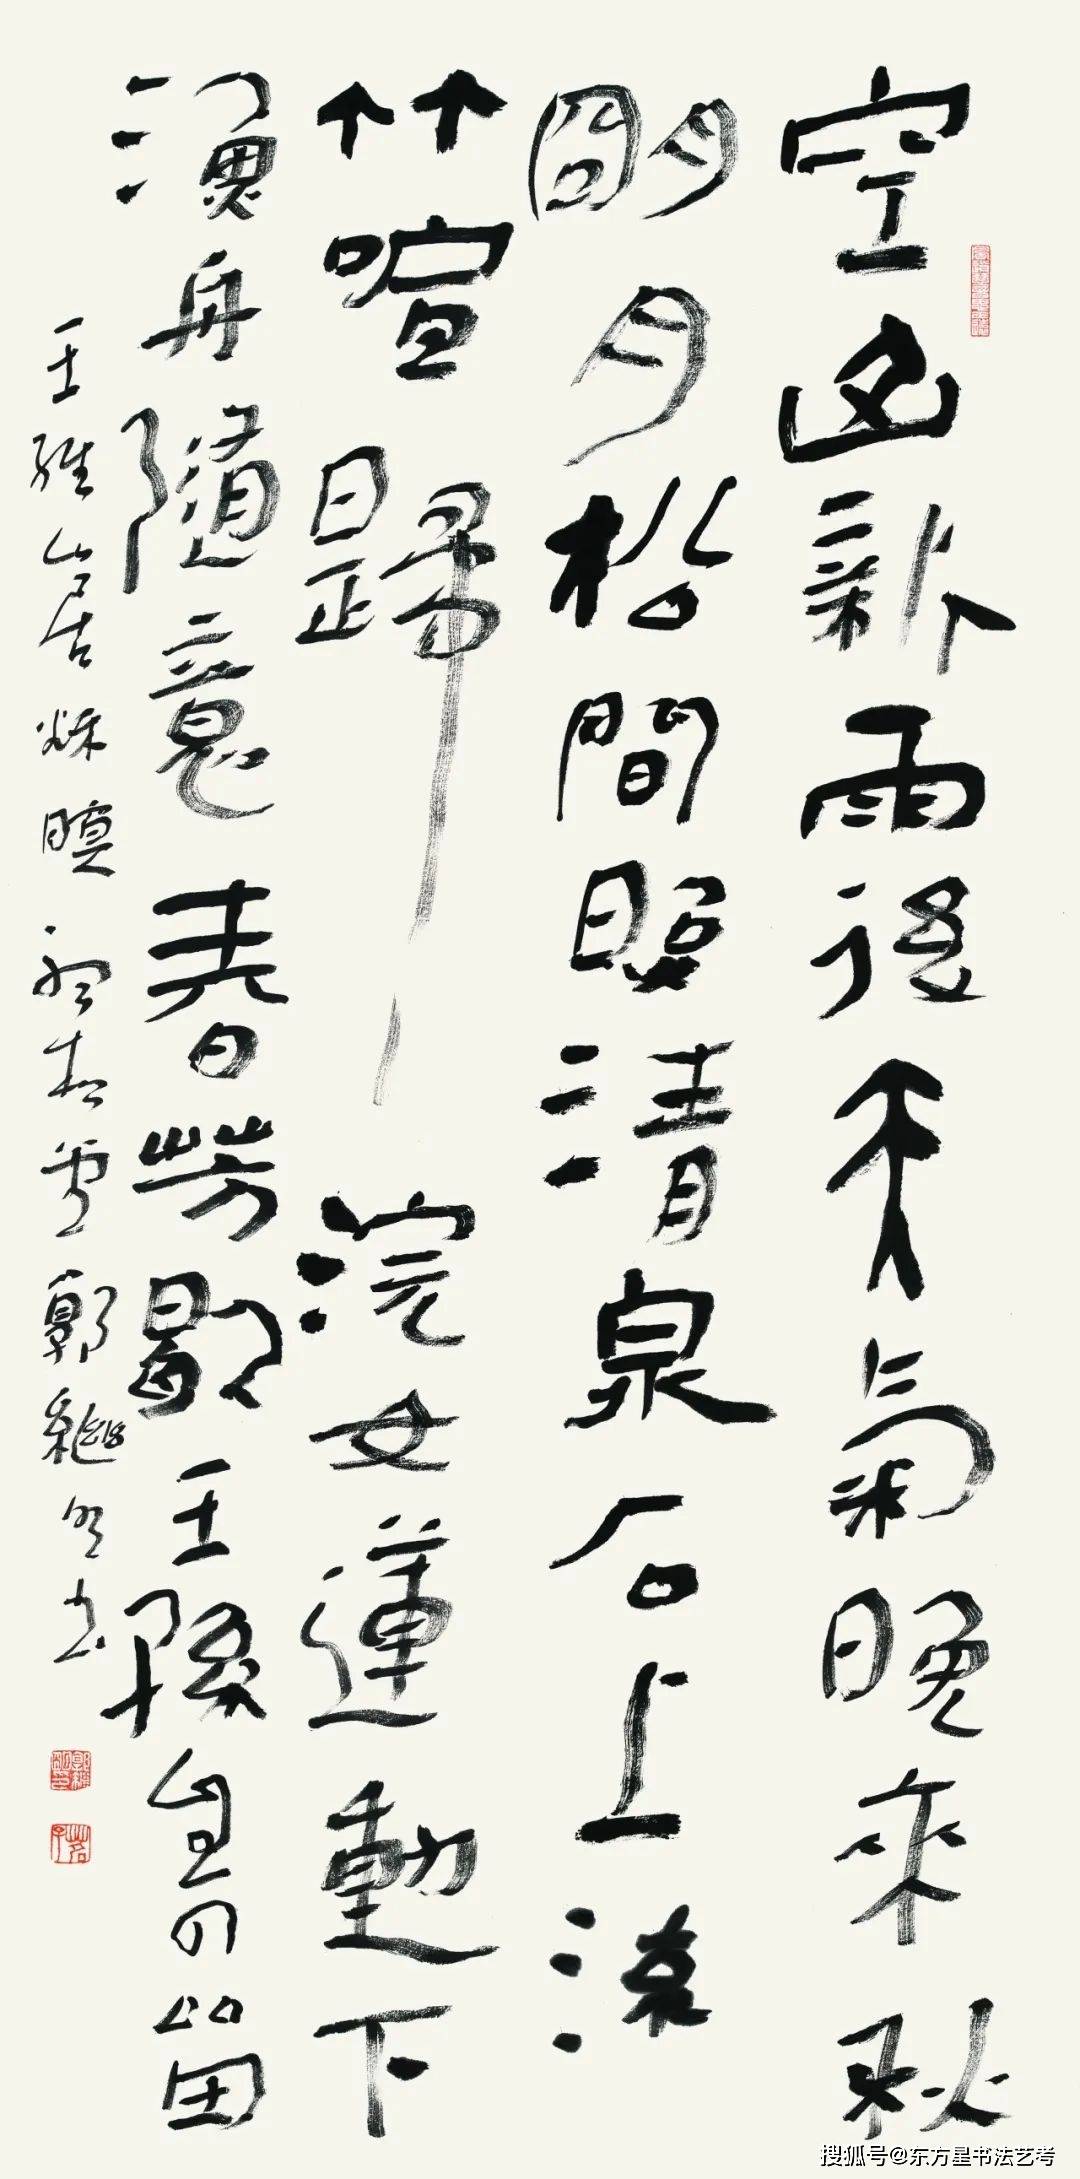 空山新雨後天氣晚來秋
明月松間照清泉石上流
竹喧歸浣女蓮動下
漁舟隨意春芳歇王孫自可留
王維山居秋暝 郭繼
搜狐号@东方星书法艺考